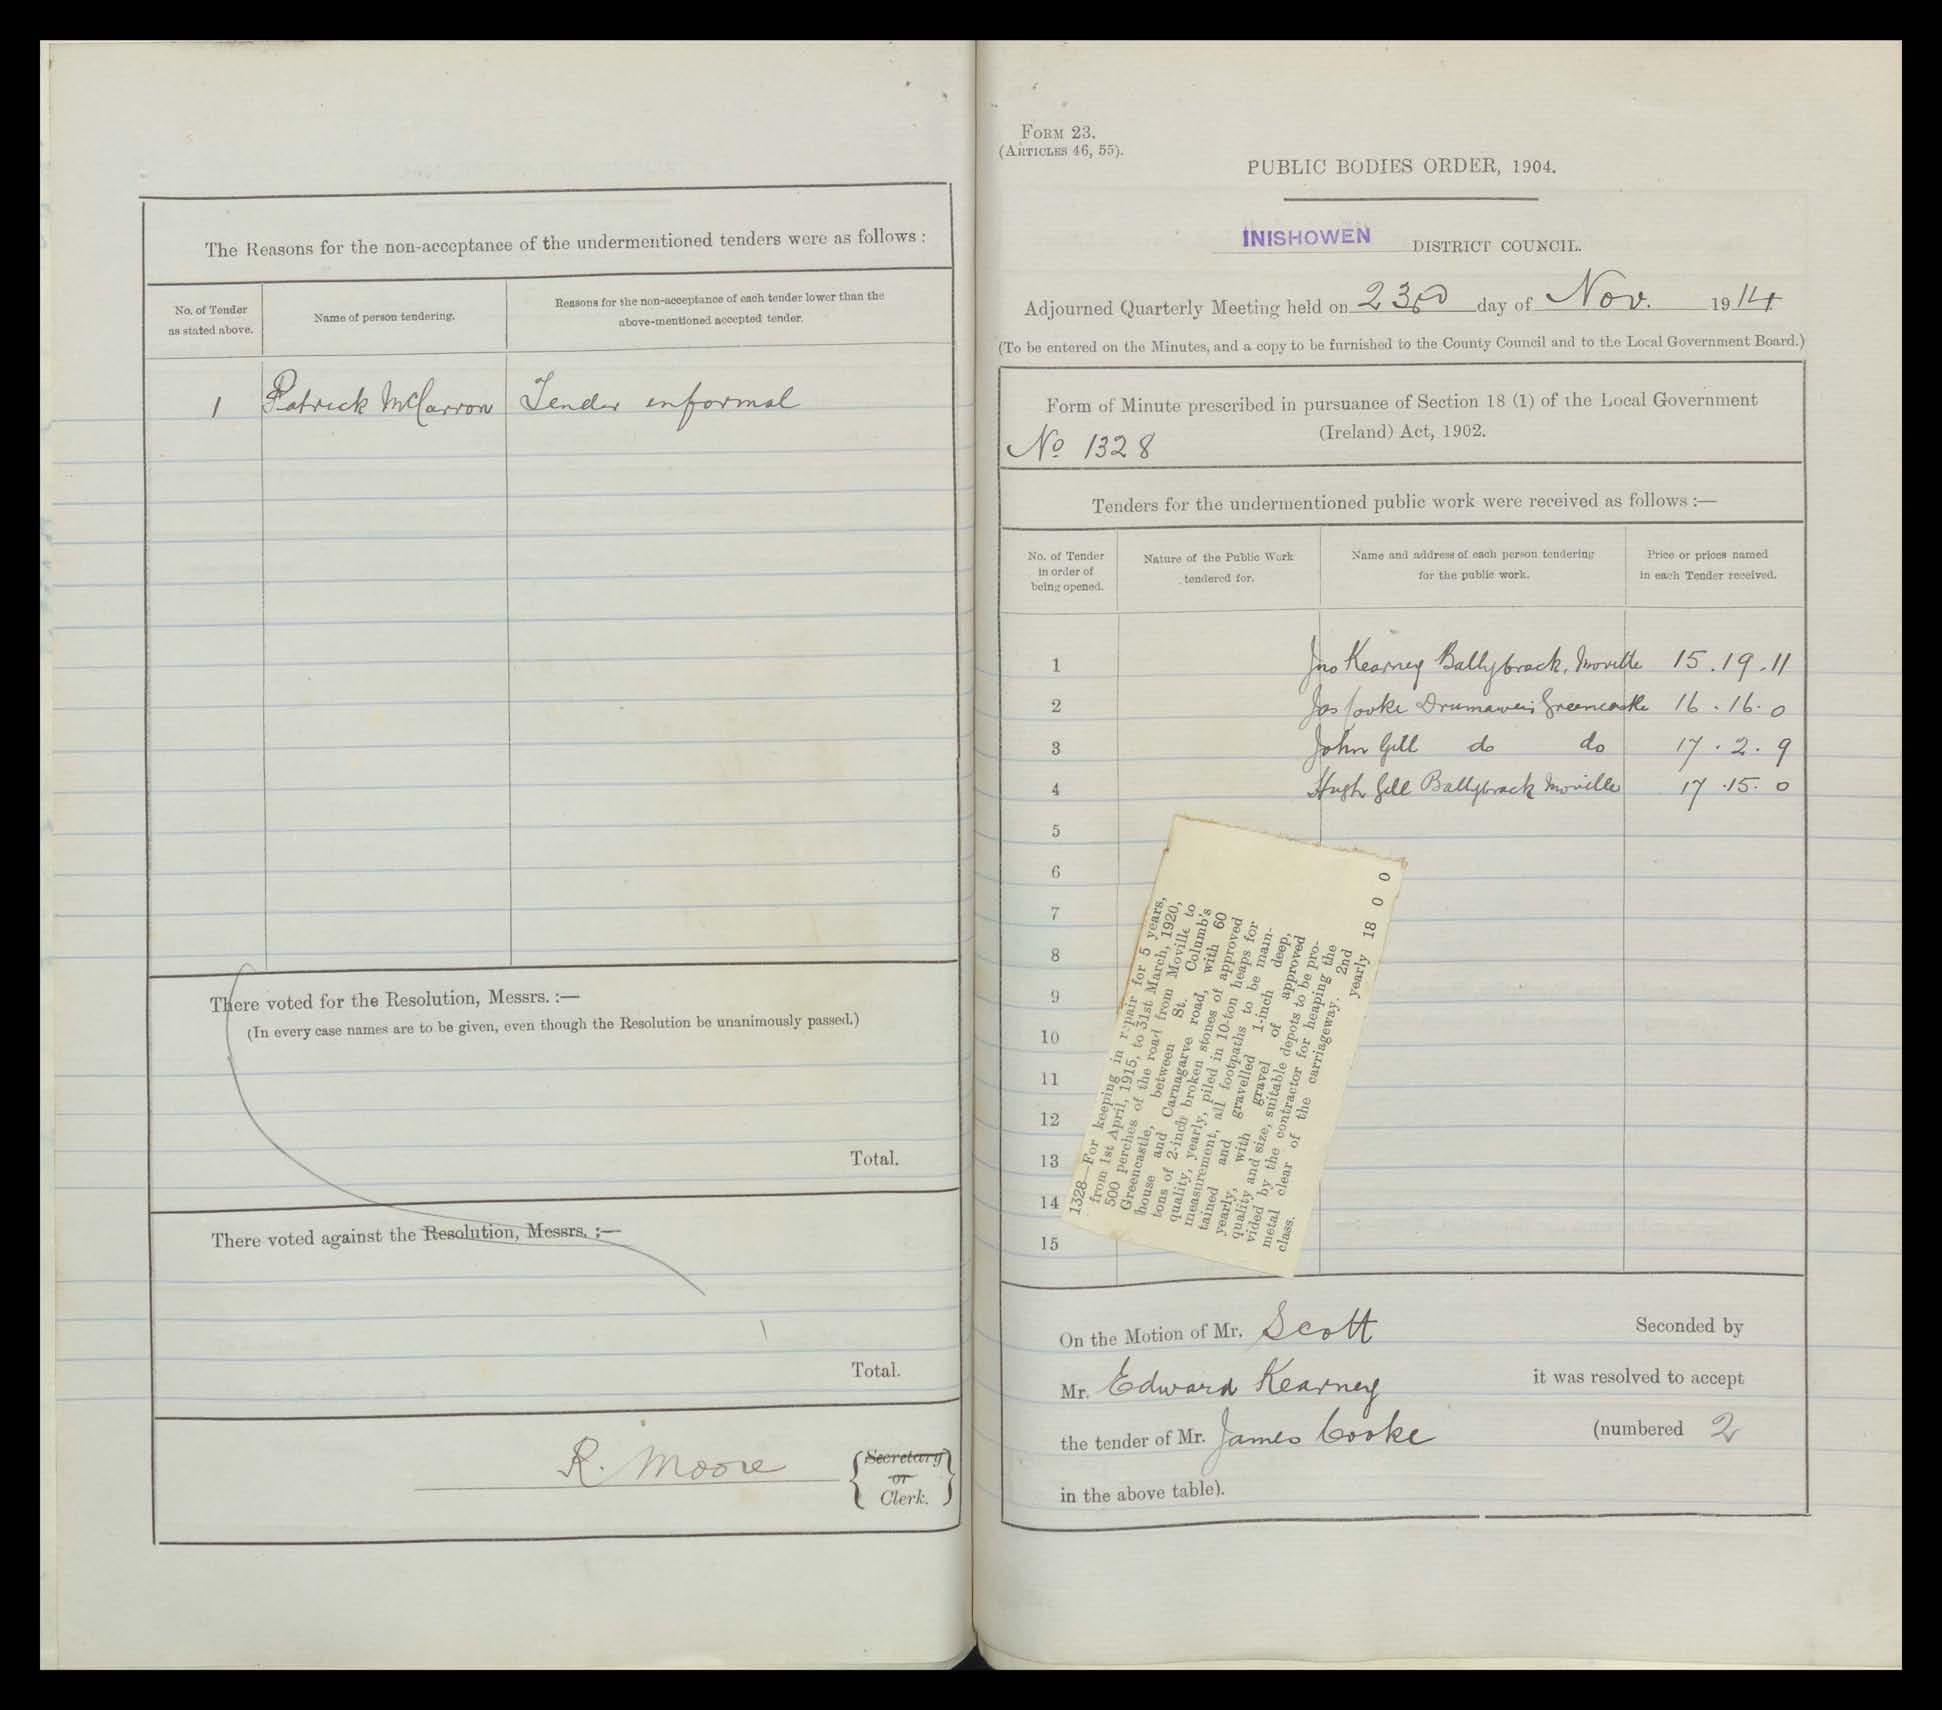 The Reasons for the non-acceptance of the undermentioned tenders were as follows :
No. of Tender
as stated above.
Name of person tendering.
Reasons for the non-acceptance of each tender lower than the
above-mentioned accepted tender.
1 Patrick McCarron Tender informal
There voted for the Resolution, Messrs. :—
(In every case names are to be given, even though the Resolution be unanimously passed.)
Total.
There voted against the Resolution, Messrs. :—
Total.
R. Moore
Secretary
or
Clerk.
FORM 23.
(ARTICLES 46, 55).
PUBLIC BODIES ORDER, 1904.
INISHOWEN DISTRICT COUNCIL.
Adjourned Quarterly Meeting held on 23rd day of Nov. 1914
(To be entered on the Minutes, and a copy to be furnished to the County Council and to the Local Government Board.)
Form of Minute prescribed in pursuance of Section 18 (1) of the Local Government
(Ireland) Act, 1902.
No 1328
Tenders for the undermentioned public work were received as follows :—
No. of Tender
in order of
being opened.
Nature of the Public Work
tendered for.
Name and address of each person tendering
for the public work.
Price or prices named
in each Tender received.
1 Jno Kearney Ballybrack, Moville 15 . 19 . 11
2 Jas Cooke Drumaweir Greencastle 16 . 16 . 0
3 John Gill do do 17 . 2 . 9
4 Hugh Gill Ballybrack Moville 17 . 15 . 0
5
6
7
8
9
10
11
12
13
14
15
1328—For keeping in repair for 5 years,
from 1st April, 1915, to 31st March, 1920,
500 perches of the road from Moville to
Greencastle, between St. Columb's
house and Carnagarve road, with 60
tons of 2-inch broken stones of approved
quality, yearly, piled in 10-ton heaps for
measurement, all footpaths to be main-
tained and gravelled 1-inch deep,
yearly, with gravel of approved
quality and size, suitable depots to be pro-
vided by the contractor for heaping the
metal clear of the carriageway. 2nd
class. yearly 18 0 0
On the Motion of Mr. Scott Seconded by
Mr. Edward Kearney it was resolved to accept
the tender of Mr. James Cooke (numbered 2
in the above table).